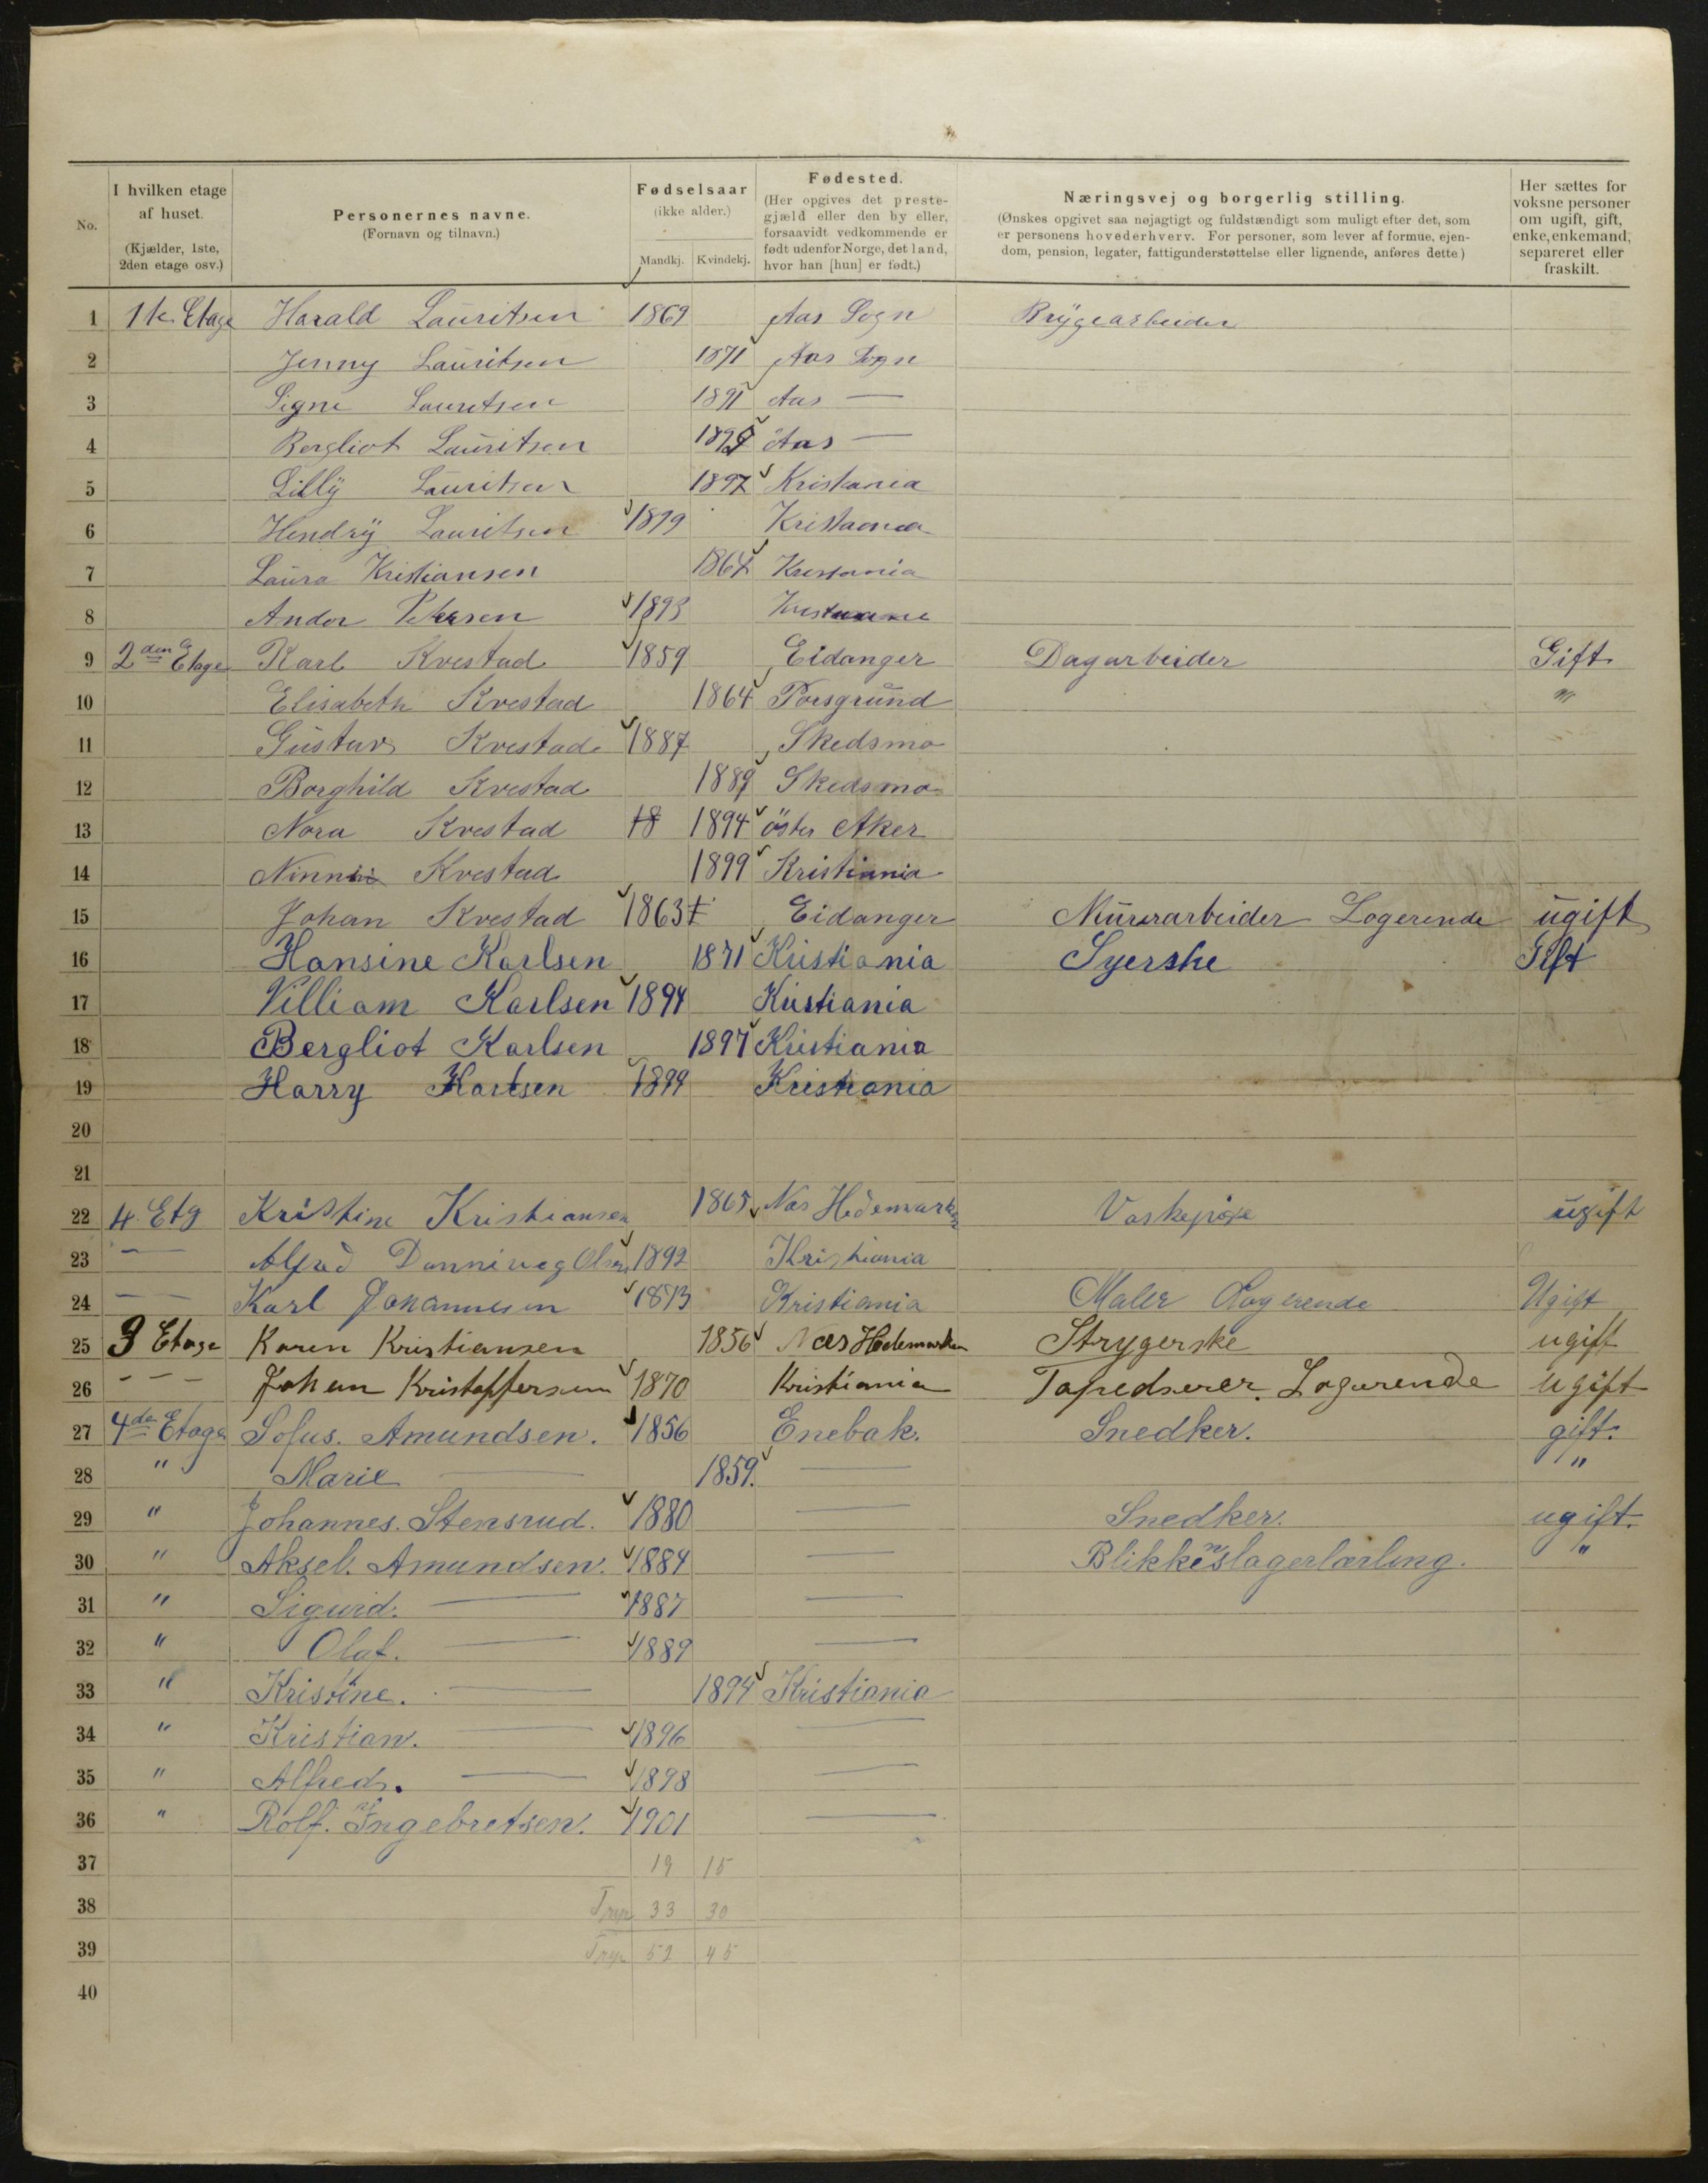 No.
I hvilken etage af huset. (Kjælder, 1ste, 2den etage osv.)
Personernes navne. (Fornavn og tilnavn.)
Fødselsaar (ikke alder.) Mandkj. Kvindekj.
Fødested. (Her opgives det prestegjæld eller den by eller, forsaavidt vedkommende er født udenfor Norge, det land, hvor han [hun] er født.)
Næringsvej og borgerlig stilling. (Ønskes opgivet saa nøjagtigt og fuldstændigt som muligt efter det, som er personens hovederhverv. For personer, som lever af formue, ejendom, pension, legater, fattigunderstøttelse eller lignende, anføres dette)
Her sættes for voksne personer om ugift, gift, enke, enkemand, separeret eller fraskilt.
1 1te Etage Harald Lauritsen 1869 Aas Sogn Brygearbeider
2 Jenny Lauritsen 1871 Aas Sogn
3 Signe Lauritsen 1891 Aas —
4 Bergliot Lauritsen Aas —
5 Lilly Lauritsen 1897 Kristiania
6 Hendry Lauritsen 1899 Kristiania
7 Laura Kristiansen 1864 Kristiania
8 Andor Petersen 1893 Kristiania
9 2den Etage Karl Kvestad 1859 Eidanger Dagarbeider Gift
10 Elisabeth Kvestad 1864 Porsgrund "
11 Gustav Kvestad 1887 Skedsmo
12 Borghild Kvestad 1889 Skedsmo
13 Nora Kvestad 18 1894 öster Aker
14 Ninni Kvestad 1899 Kristiania
15 Johan Kvestad 1863 Eidanger Murerarbeider Logerende ugift
16 Hansine Karlsen 1871 Kristiania Syerske Gift
17 Villiam Karlsen 1894 Kristiania
18 Bergliot Karlsen 1897 Kristiania
19 Harry Karlsen 1899 Kristiania
20
21
22 4 Etg Kristine Kristiansen 1865 Nas Hedemarken Vaskepige ugift
23 — Alfred Danniveg Olsen 1892 Kristiania
24 — — Karl Johannesen 1873 Kristiania Maler Logerende Ugift
25 3 Etage Karen Kristiansen 1856 Næs Hedemarken Strygerske ugift
26 - - - Johan Kristoffersen 1870 Kristiania Tapedserer. Logerende Ugift
27 4de Etage Sofus. Amundsen. 1856 Enebak. Snedker. gift.
28 " Marie — 1859. — "
29 " Johannes. Stensrud. 1880 — Snedker. ugift.
30 " Aksel. Amundsen. 1884 — Blikkenslagerlærling. "
31 " Sigurd. — 1887 —
32 " Olaf. — 1889 —
33 " Kristine. — 1894 Kristiania
34 " Kristian. — 1896 —
35 " Alfred. — 1898 —
36 " Rolf. Ingebretsen. 1901 —
37 19 15
38 33 30
39 52 45
40